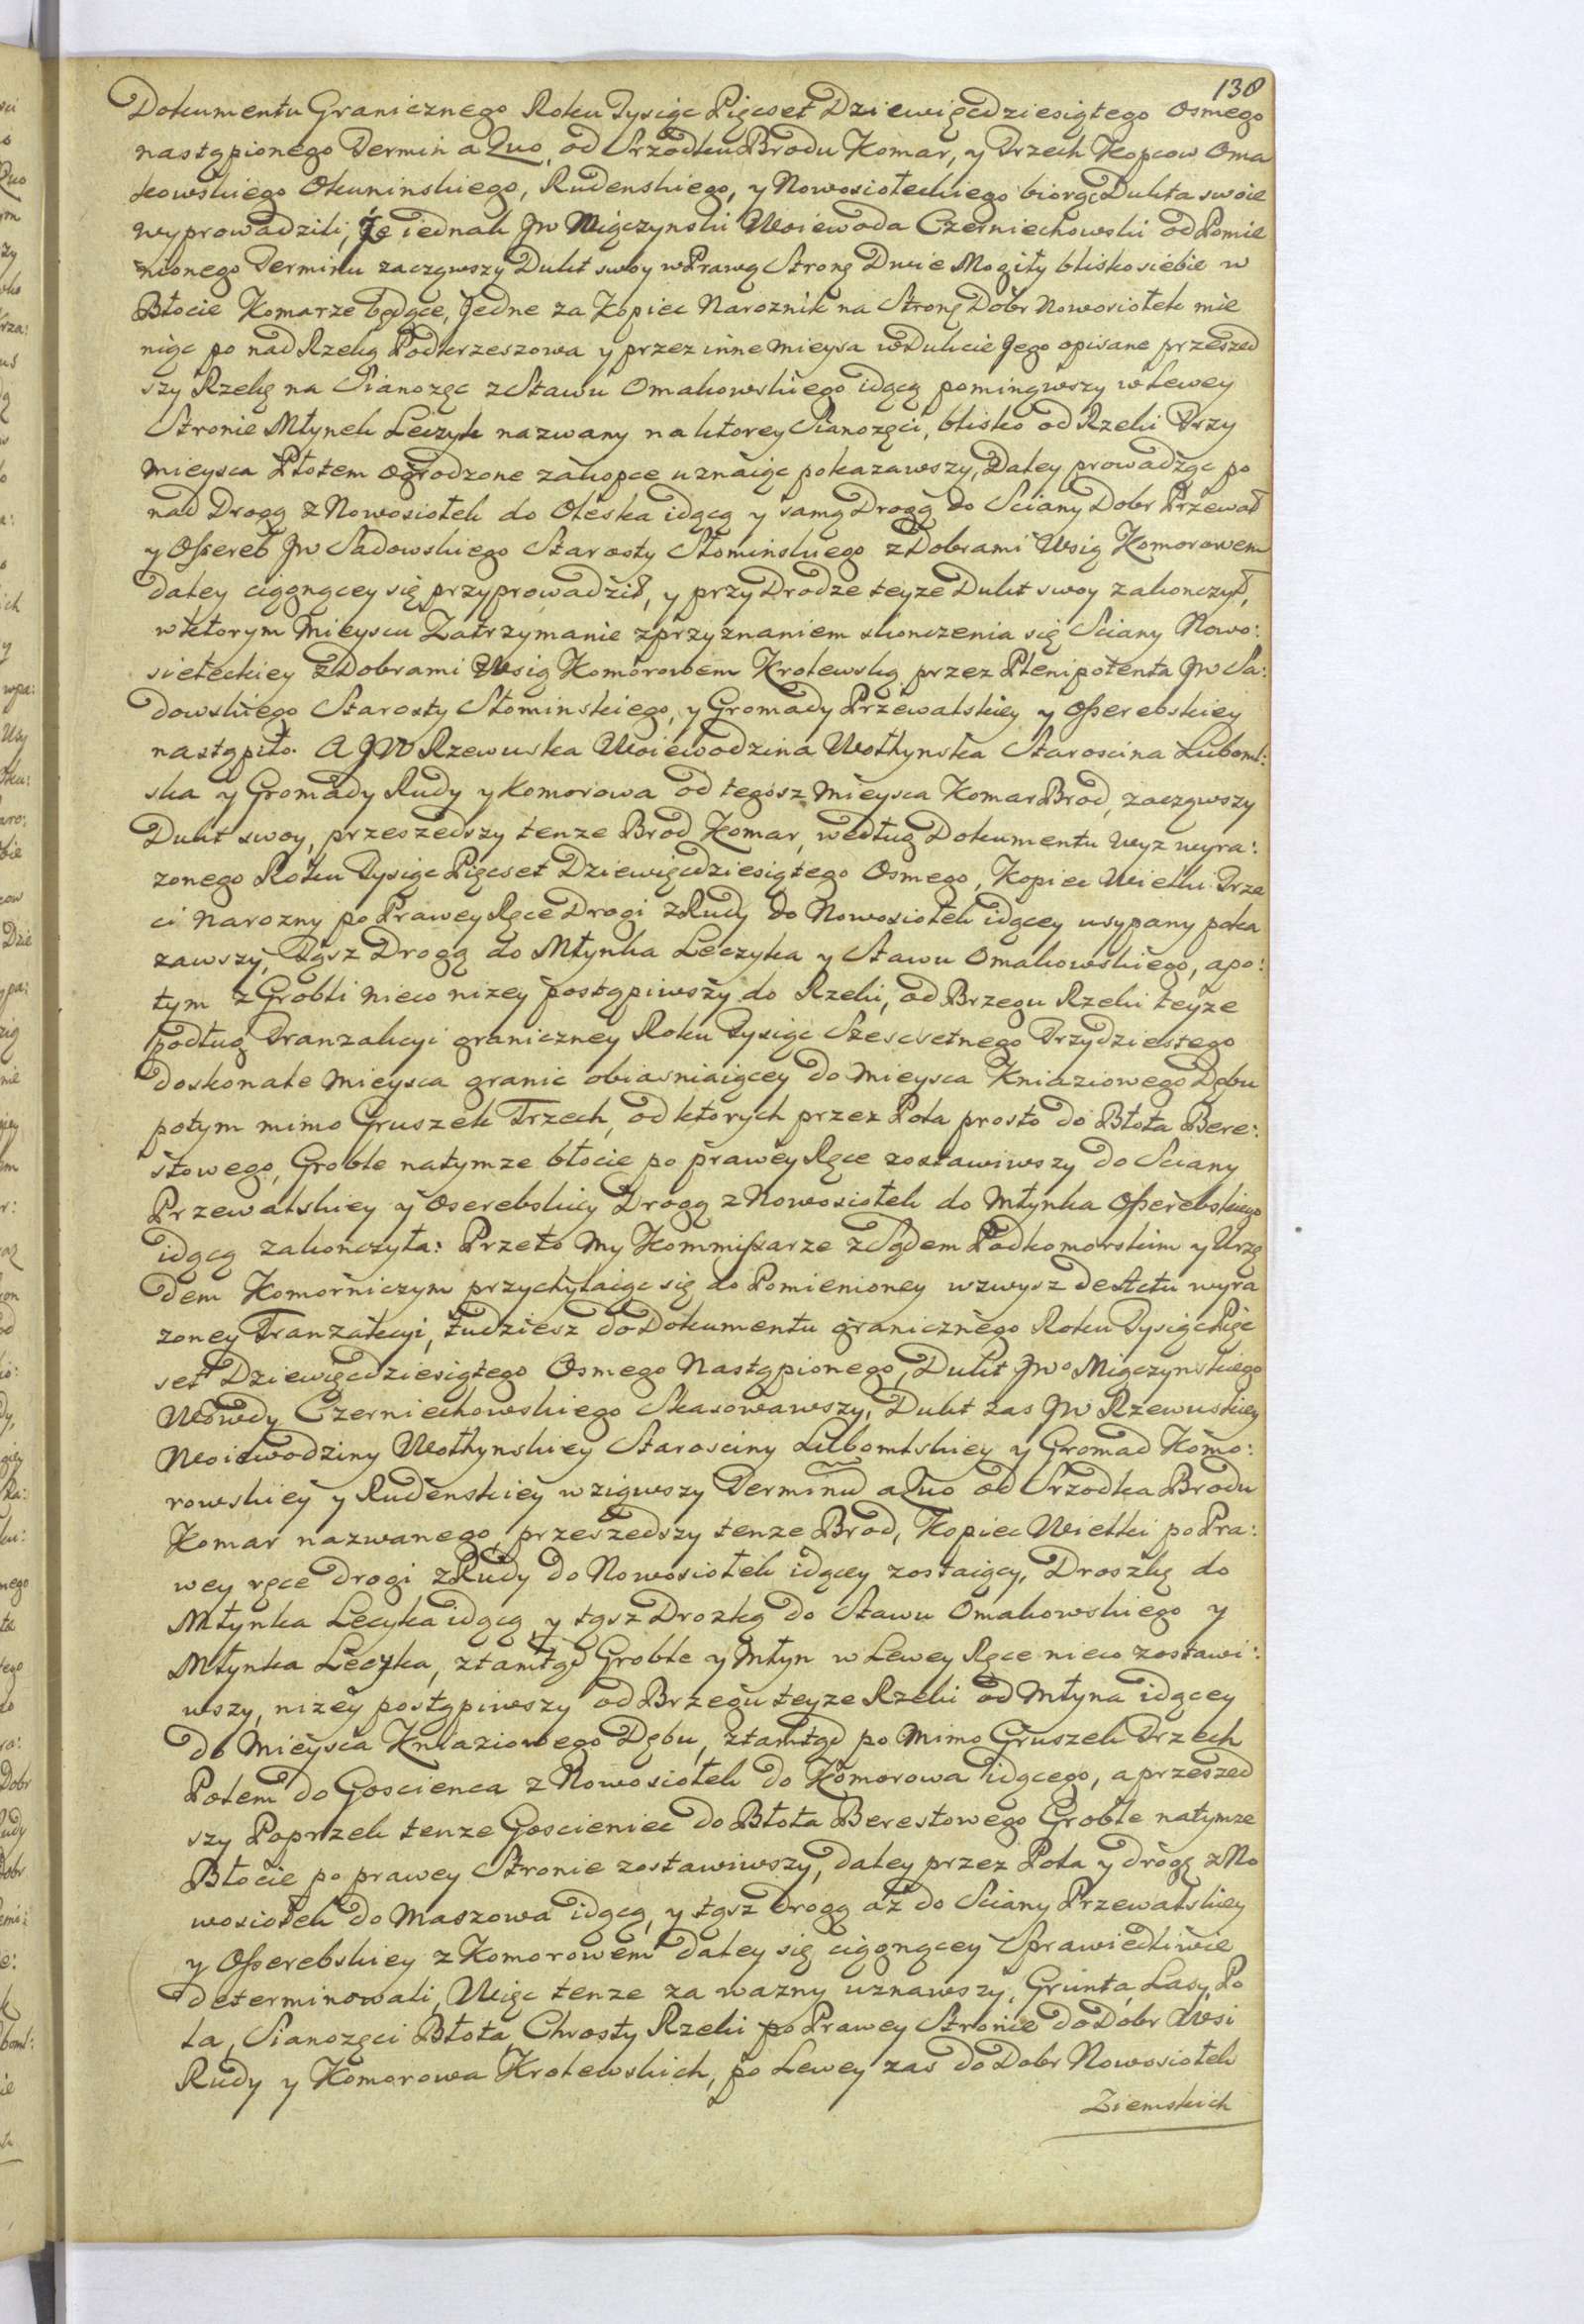 138
Dokumentu Granicznego Roku Tysiąc Pięcset Dziewięcdziesiątego Osmego
nastąpionego Termin a Quo, od Srzodku Brodu Komar, y Trzech Kopcow Oma
kowskiego Okuninskiego, Rudenskiego, y Nowosioteckiego biorąc Dukta swoie
wyprowadzili, Że iednak Jw Miączynski Woiewoda Czerniechowski od Pomie
nionego Terminu zacząwszy Dukt swoy w Prawą Stronę Dwie Mogiły blisko siebie w
Błocie Komarze będące, Jedne za Kopiec Naroznik na Stronę Dobr Nowosiołek mie
niąc po nad Rzeką Podkrzeszowa y przez inne mieysa w Dukcie Jego opisane przeszed
szy Rzekę na Sianozęc z Stawu Omakowskiego idącą pominąwszy w Lewey
Stronie Młynek Leczyk nazwany na ktorey Sianozęci, blisko od Rzeki Trzy
mieysca Płotem ogrodzone za kopce uznaiąc pokazawszy, Daley prowadząc po
nad Drogą z Nowosiołek do Oleska idącą y samą Drogą do Sciany Dobr Przewał
y Ossereb Jw Sadowskiego Starosty Słominskiego z Dobrami Wsią Komorowem
daley ciągnącey się przyprowadził, y przy Drodze teyze Dukt swoy zakonczył,
w ktorym Mieyscu Zatrzymanie z przyznaniem skonczenia się Sciany Nowo:
sieleckiey z Dobrami Wsią Komorowem Krolewską przez Plenipotenta Jw Sa:
dowskiego Starosty Słominskiego, y Gromady Przewalskiey y Osserebskiey
nastąpiło. A JW Rzewuska Woiewodzina Wołhynska Staroscina Luboml:
ska y Gromady Rudy y Komorowa od tegosz Mieysca Komar Brod, zacząwszy
Dukt swoy, przeszedszy tenze Brod Komar, według Dokumentu wyz wyra:
zonego Roku Tysiąc Pięcset Dziewięcdziesiątego Osmego, Kopiec Wielki Trze
ci Narozny po Prawey Ręce Drogi z Rudy do Nowosiołek idącey usypany poka
zawszy, Tąsz Drogą do Młynka Leczyka y Stawu Omakowskiego, a po:
tym z Grobli nieco nizey postąpiwszy do Rzeki, od Brzegu Rzeki teyze
podług Tranzakcyi graniczney Roku Tysiąc Szescsetnego Trzydziestego
doskonale mieysca granic obiasniaiącey do mieysca Kniaziowego Dębu
potym mimo Gruszek Trzech, od ktorych przez Pola prosto do Błota Bere:
stowego, Groble na tymze błocie po prawey Ręce zostawiwszy do Sciany
Przewalskiey y Oserebskiey Drogą z Nowosiołek do Młynka Osserebskiego
idącą zakonczyła: Przeto My Kommissarze z Sądem Podkomorskim y Urzę
dem Komorniczym przychylaiąc się do Pomienioney wzwysz de Actu wyra
zoney Tranzakcyi, tudziesz do Dokumentu granicznego Roku Tysiąc Pięc
set Dziewięcdziesiątego Osmego Nastąpionego, Dukt Jwo Miączynskiego
Wowdy Czerniechowskiego Skasowawszy, Dukt zas Jw Rzewuskiey
Woiewodziny Wołhynskiey Starosciny Lubomlskiey y Gromad Komo:
rowskiey y Rudenskiey wziąwszy Terminũ a Quo od Srzodka Brodu
Komar nazwanego, przeszedszy tenze Brod, Kopiec Wielki po Pra:
wey ręce drogi z Rudy do Nowosiołek idącey zostaiący, Droszkę do
Młynka Lecyka idącą y tąsz Drozką do Stawu Omakowskiego y
Młynka Leczyka, ztamtąd Groble y Młyn w Lewey Ręce nieco zostawi:
wszy, nizey postąpiwszy od Brzegu teyze Rzeki od Młyna idącey
do Mieysca Kniaziowego Dębu, ztamtąd po Mimo Gruszek Trzech
Polem do Goscienca z Nowosiołek do Komorowa idącego, a przeszed
szy Poprzek tenze Goscieniec do Błota Berestowego Groble na tymze
Błocie po prawey Stronie zostawiwszy, daley przez Pola y drogę z No
wosiołek do Maszowa idącą, y tąsz Drogą az do Sciany Przewalskiey
y Osserebskiey z Komorowem daley się ciągnącey Sprawiedliwie
determinowali, Więc tenze za wazny uznawszy, Grunta, Lasy, Po
la, Sianozęci Błota, Chrosty Rzeki po Prawey Stronie do Dobr Wsi
Rudy y Komorowa Krolewskich, po Lewey zas do Dobr Nowosiołek
Ziemskich